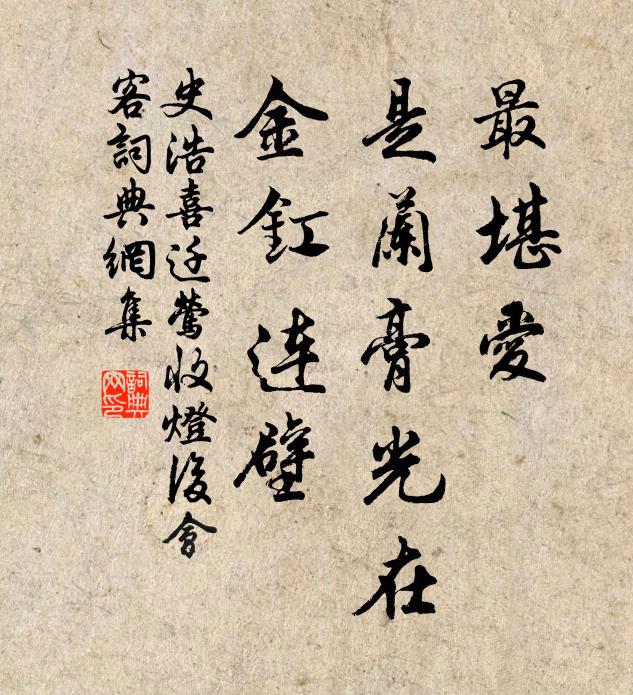 最堪愛
是蘭膏光在
金釭連壁
史浩喜迁鶯收燈後會
客詞典網集
詞典网印